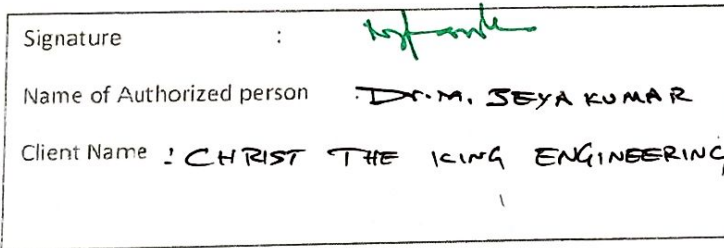 Signature :
Name of Authorized person : Dr. M. JEYA KUMAR
Client Name : CHRIST THE KING ENGINEERING